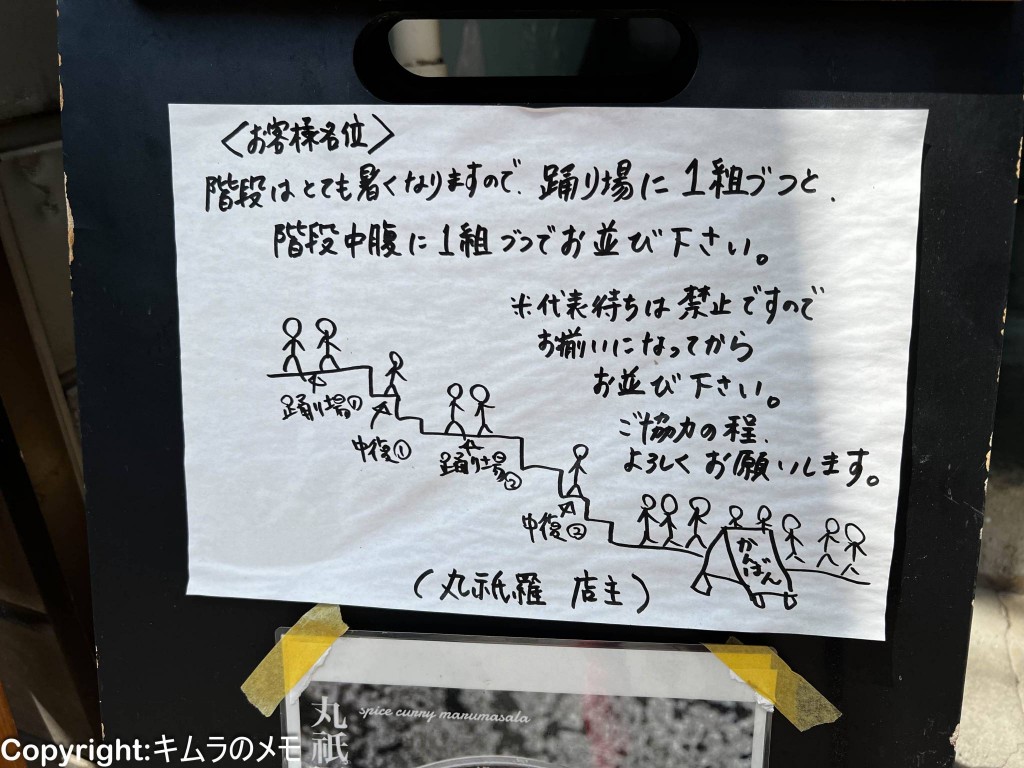 〈お客様各位〉
階段はとても暑くなりますので、踊り場に1組づつと、
階段中腹に1組づつでお並び下さい。
※代表待ちは禁止ですので
お揃いになってから
お並び下さい。
ご協力の程、
よろしくお願いします。
踊り場①
中復①
踊り場②
中復②
かんばん
(丸祇羅 店主)
spice curry marumasala
丸祇
Copyright:キムラのメモ